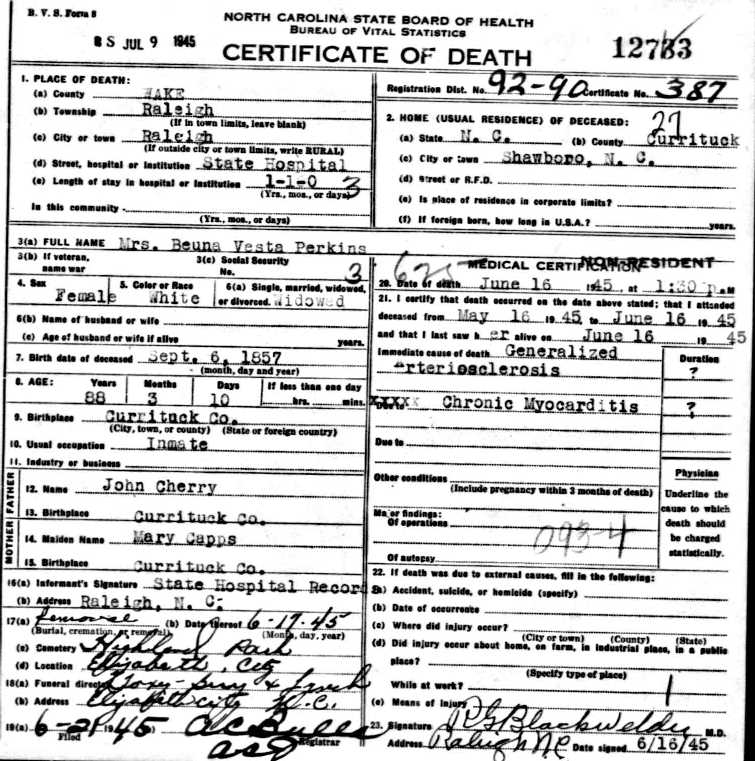 B. V. S. Form 8
NORTH CAROLINA STATE BOARD OF HEALTH
BUREAU OF VITAL STATISTICS
CERTIFICATE OF DEATH
JUL 9 1945
Registration Dist. No. 92-90 Certificate No. 387
1. PLACE OF DEATH:
(a) County WAKE
(b) Township Raleigh
(If in town limits, leave blank)
(c) City or town Raleigh
(If outside city or town limits, write RURAL)
(d) Street, hospital or institution State Hospital
(e) Length of stay in hospital or institution 1-1-0 3
(Yrs., mos., or days)
In this community
(Yrs., mos., or days)
2. HOME (USUAL RESIDENCE) OF DECEASED: 27
(a) State N. C. (b) County Currituck
(c) City or town Shawboro, N. C.
(d) Street or R.F.D.
(e) Is place of residence in corporate limits?
(f) If foreign born, how long in U.S.A.? years.
3(a) FULL NAME Mrs. Beuna Vesta Perkins
3(b) If veteran, name war
3(c) Social Security No. 3
4. Sex Female
5. Color or Race White
6(a) Single, married, widowed, or divorced. Widowed
6(b) Name of husband or wife
(c) Age of husband or wife if alive years.
7. Birth date of deceased Sept. 6, 1857
(month, day and year)
8. AGE: Years Months Days If less than one day
88 3 10 hrs. mins.
9. Birthplace Currituck Co.
(City, town, or county) (State or foreign country)
10. Usual occupation Inmate
11. Industry or business
FATHER
12. Name John Cherry
13. Birthplace Currituck Co.
MOTHER
14. Maiden Name Mary Capps
15. Birthplace Currituck Co.
16(a) Informant's Signature State Hospital Records
(b) Address Raleigh, N. C.
17(a) removal (b) Date thereof 6-17-45
(Burial, cremation, or removal) (Month, day, year)
(c) Cemetery Highland Park
(d) Location Elizabeth City
18(a) Funeral director
(b) Address Elizabeth City N.C.
19(a) 6-21 1945
Filed Registrar
NON-RESIDENT
MEDICAL CERTIFICATION
20. Date of death June 16 1945, at 1:30 p M
21. I certify that death occurred on the date above stated; that I attended
deceased from May 16 1945 to June 16 1945
and that I last saw h er alive on June 16 1945
Immediate cause of death Generalized
Arteriosclerosis
Duration
?
XXXXX Due to Chronic Myocarditis ?
Due to
Other conditions
(Include pregnancy within 3 months of death)
Major findings:
Of operations
093-4
Of autopsy
Physician
Underline the
cause to which
death should
be charged
statistically.
22. If death was due to external causes, fill in the following:
(a) Accident, suicide, or homicide (specify)
(b) Date of occurrence
(c) Where did injury occur?
(City or town) (County) (State)
(d) Did injury occur about home, on farm, in industrial place, in a public
place?
(Specify type of place)
While at work?
(e) Means of injury
23. Signature Blackwelder M.D.
Address Raleigh NC Date signed 6/16/45